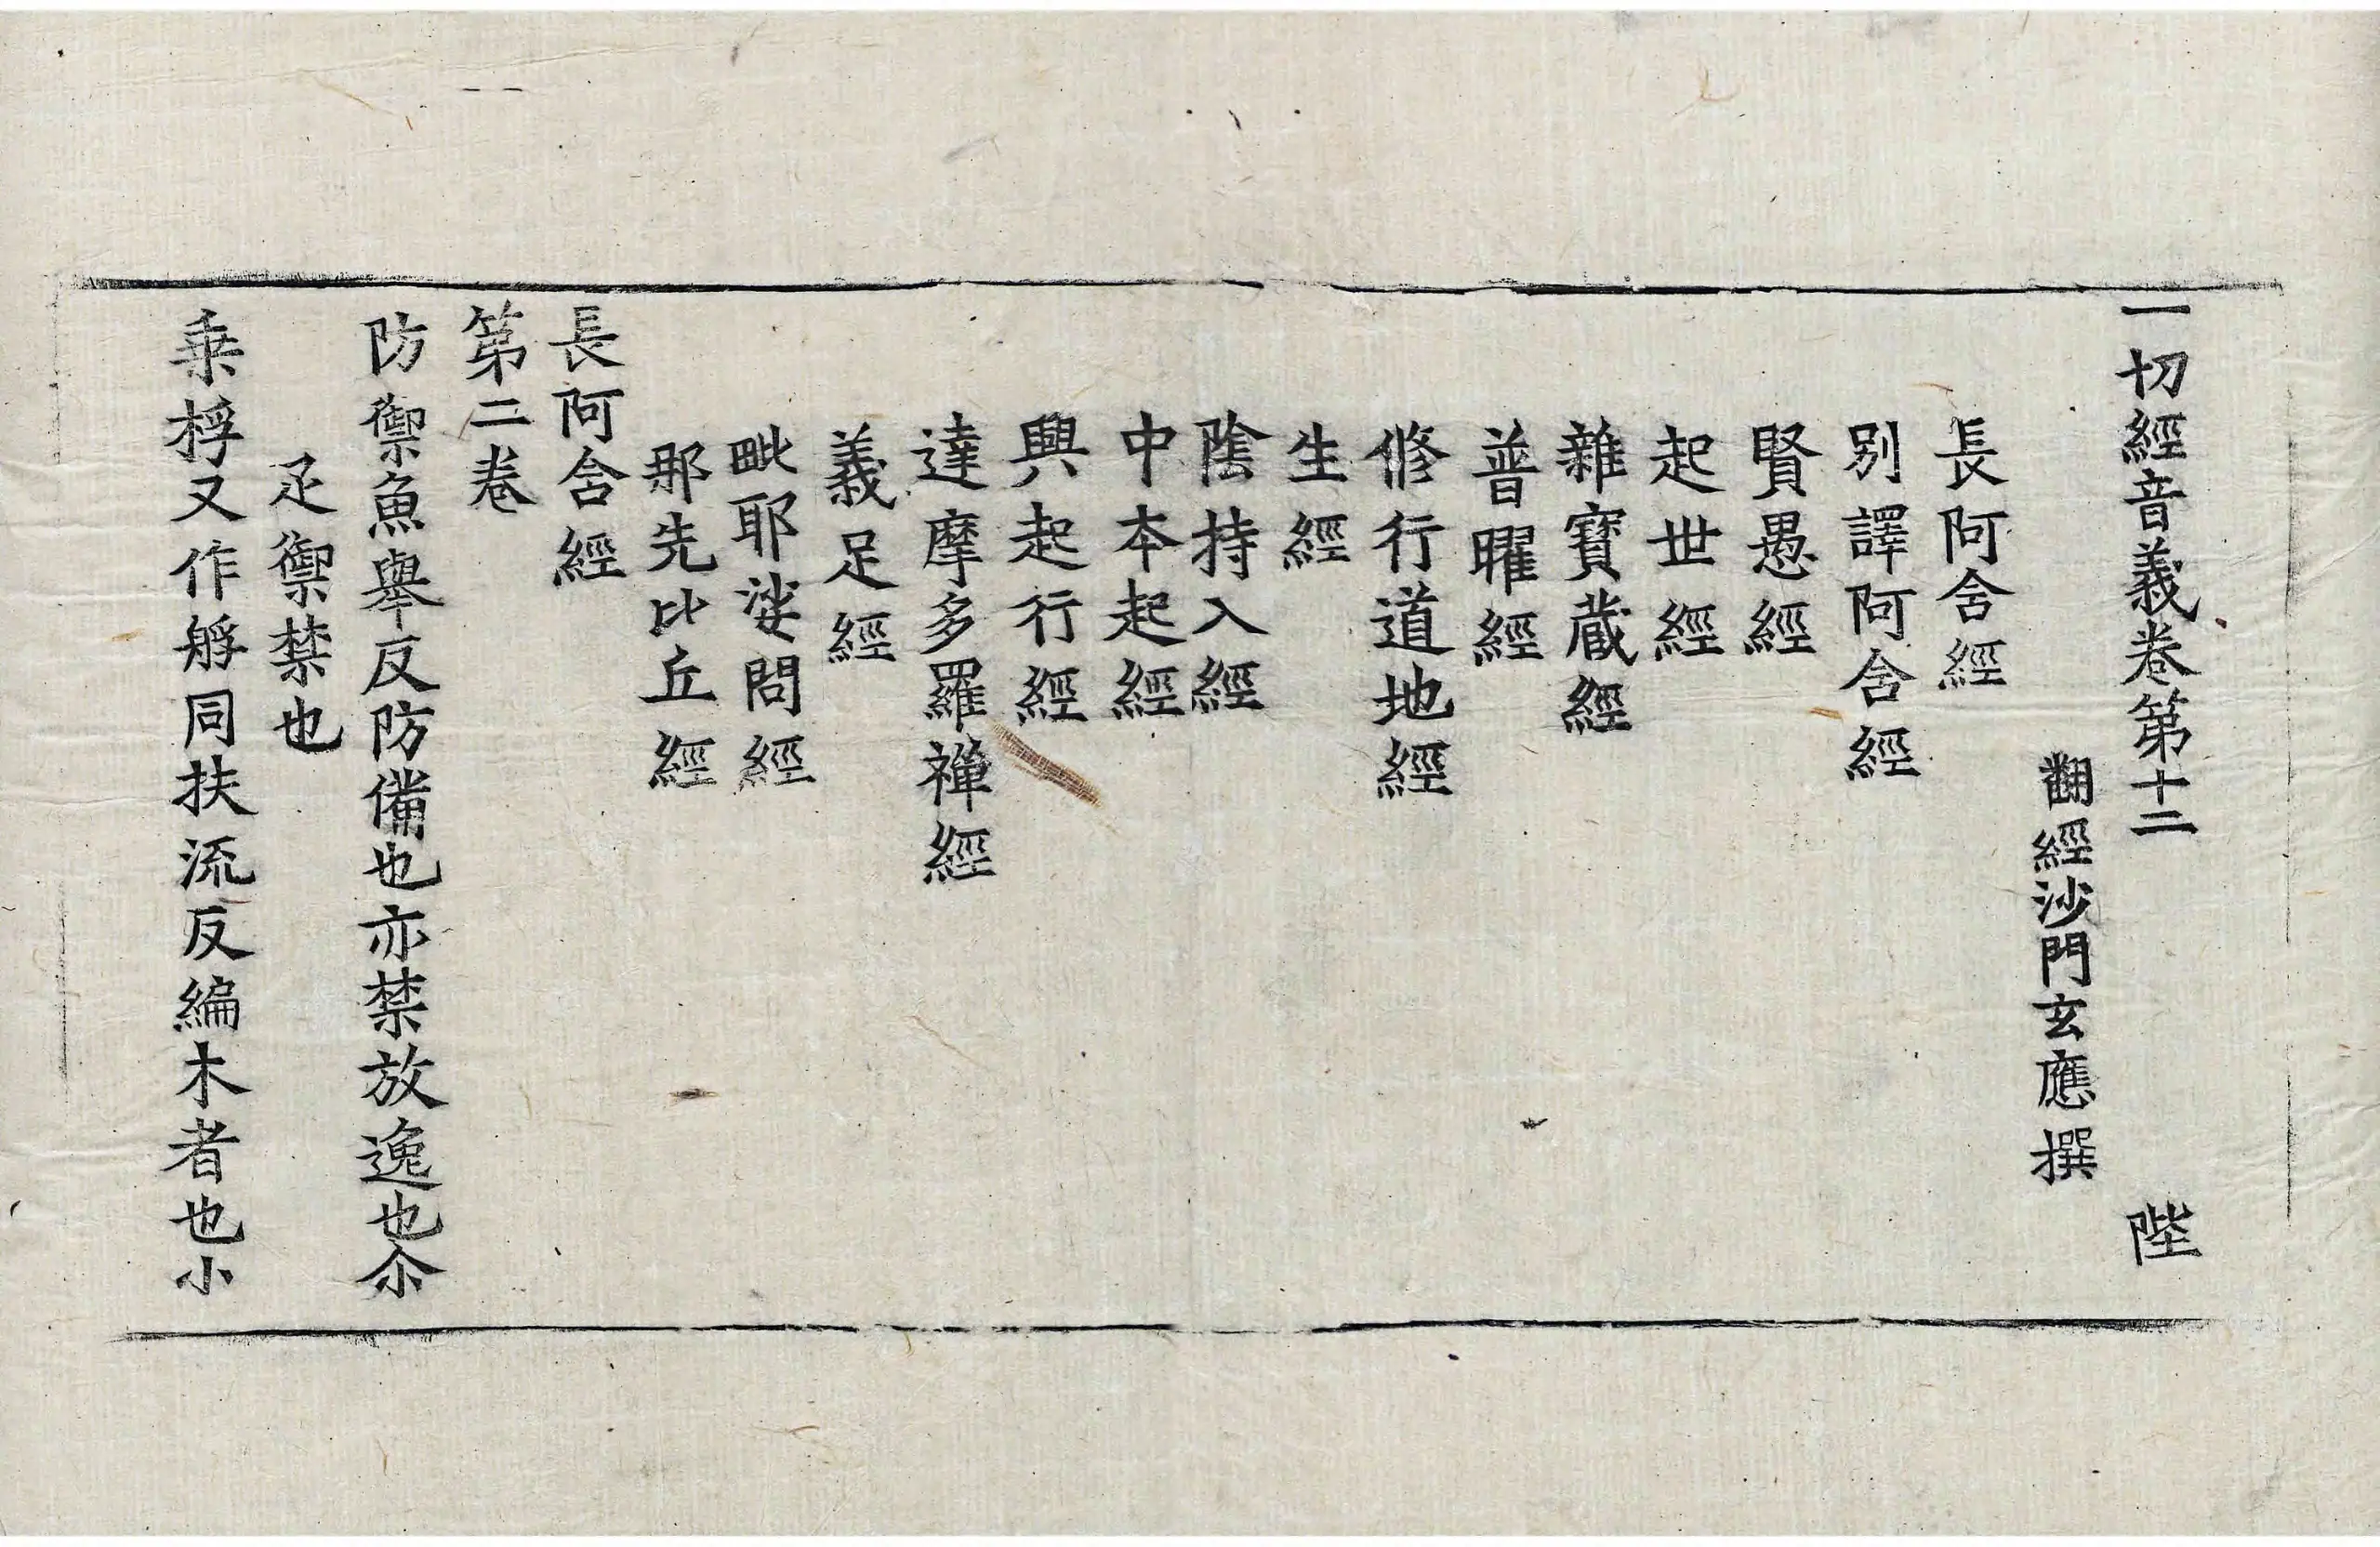 一切經音義卷第十二 陛
翻經沙門玄應撰
長阿含經
別譯阿含經
賢愚經
起世經
雜寶藏經
普曜經
修行道地經
生經
陰持入經
中本起經
興起行經
達摩多羅禪經
義足經
毗耶娑問經
那先比丘經
長阿含經
第二卷
防禦魚舉反防備也亦禁放逸也尒
疋禦禁也
乘桴又作艀同扶流反編木者也小